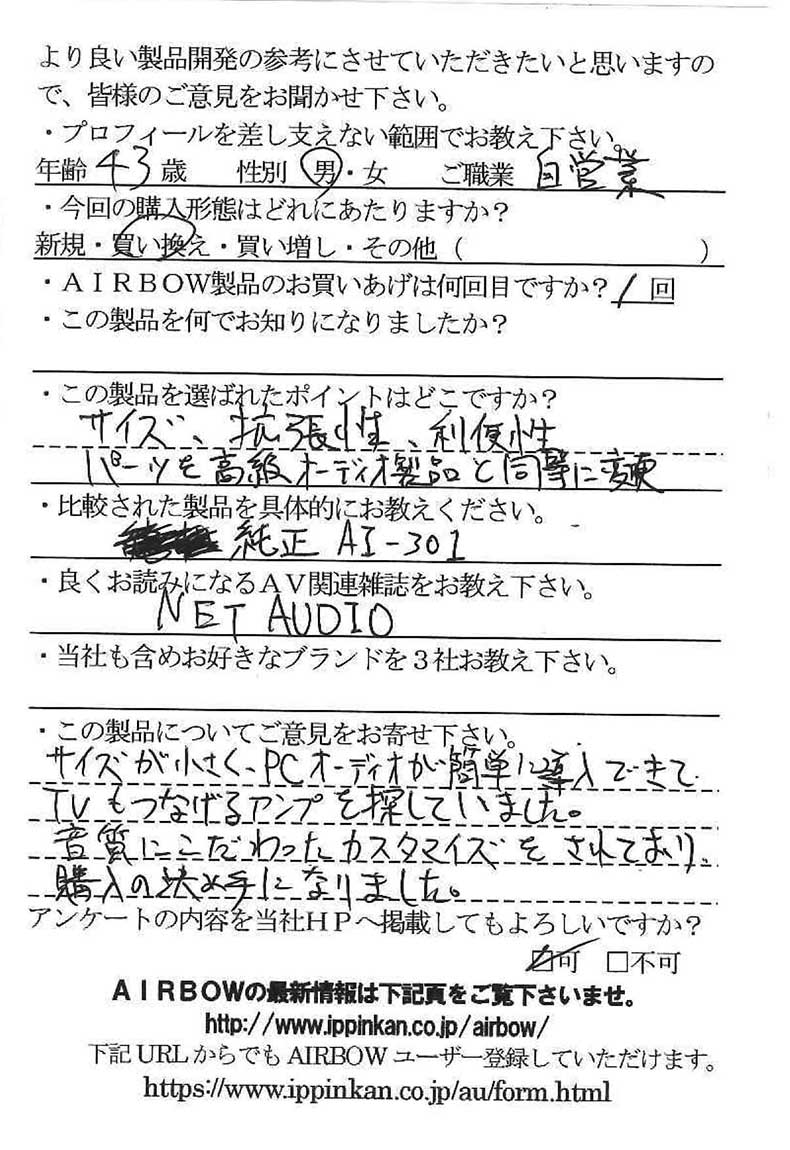 より良い製品開発の参考にさせていただきたいと思いますの
で、皆様のご意見をお聞かせ下さい。
・プロフィールを差し支えない範囲でお教え下さい。
年齢 43 歳 性別 男・女 ご職業 自営業
・今回の購入形態はどれにあたりますか？
新規・買い換え・買い増し・その他（ ）
・ＡＩＲＢＯＷ製品のお買いあげは何回目ですか？ 1 回
・この製品を何でお知りになりましたか？
・この製品を選ばれたポイントはどこですか？
サイズ、拡張性、利便性
パーツを高級オーディオ製品と同等に変更
・比較された製品を具体的にお教えください。
純正 AI-301
・良くお読みになるＡＶ関連雑誌をお教え下さい。
NET AUDIO
・当社も含めお好きなブランドを３社お教え下さい。
・この製品についてご意見をお寄せ下さい。
サイズが小さく、PCオーディオが簡単に導入できて
TVもつなげるアンプを探していました。
音質にこだわったカスタマイズをされており、
購入の決め手になりました。
アンケートの内容を当社ＨＰへ掲載してもよろしいですか？
☑可 □不可
ＡＩＲＢＯＷの最新情報は下記頁をご覧下さいませ。
http://www.ippinkan.co.jp/airbow/
下記 URL からでも AIRBOW ユーザー登録していただけます。
https://www.ippinkan.co.jp/au/form.html